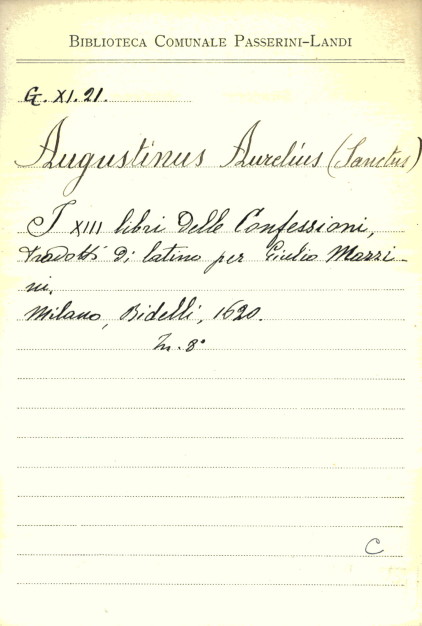 BIBLIOTECA COMUNALE PASSERINI-LANDI
G. XI. 21.
Augustinus Aurelius (Sanctus)
I XIII libri delle Confessioni,
tradotti di latino per Giulio Mazzi-
ni.
Milano, Bidelli, 1620.
In-8°
C